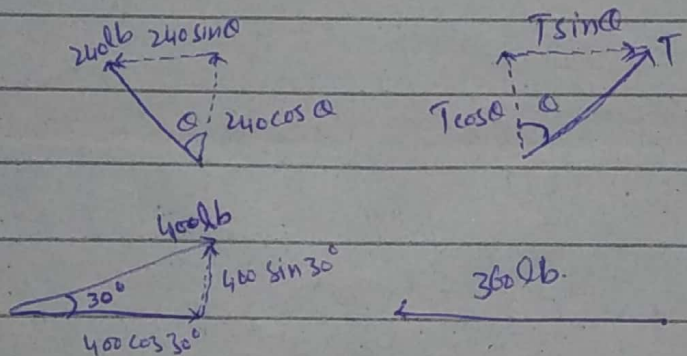 240lb 240sinθ
Tsinθ T
θ 240cosθ
Tcosθ θ
400lb
30° 400 sin30°
400 cos30°
360lb.